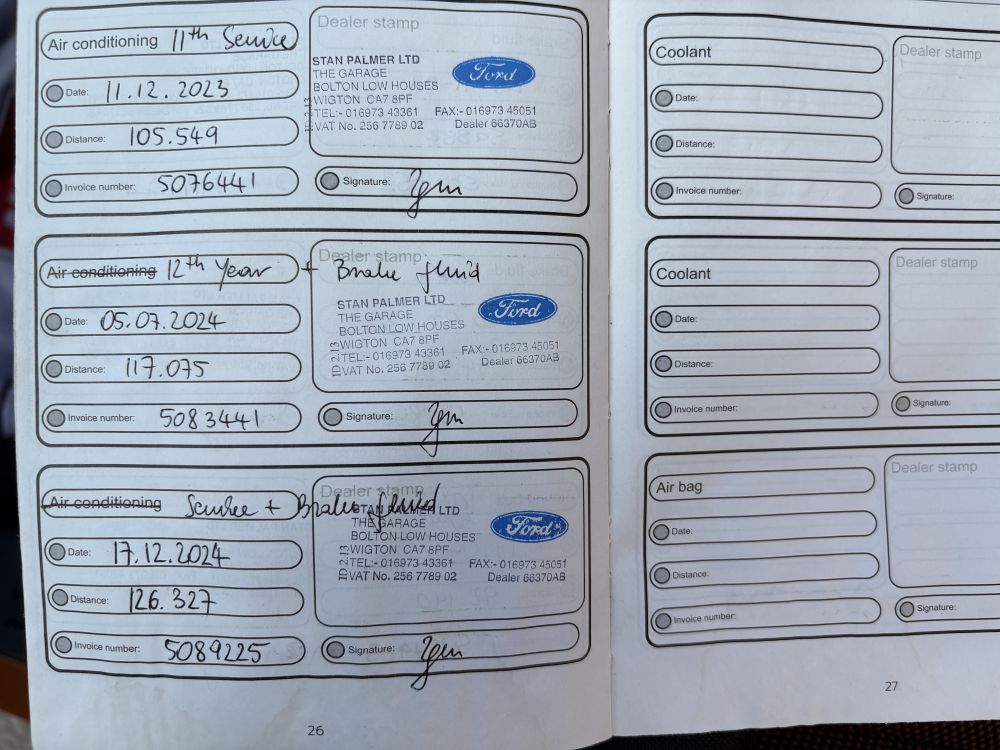 Air conditioning 11th Service
Date: 11.12.2023
Distance: 105.549
Invoice number: 5076441
Dealer stamp
STAN PALMER LTD
THE GARAGE
BOLTON LOW HOUSES
WIGTON CA7 8PF
TEL:- 016973 43361 FAX:- 016973 45051
VAT No. 256 7789 02 Dealer 66370AB
Ford
ID 2.13
Signature:
Air conditioning 12th Year + Brake fluid
Date: 05.07.2024
Distance: 117.075
Invoice number: 5083441
Dealer stamp
STAN PALMER LTD
THE GARAGE
BOLTON LOW HOUSES
WIGTON CA7 8PF
TEL:- 016973 43361 FAX:- 016973 45051
VAT No. 256 7789 02 Dealer 66370AB
Ford
ID 2.13
Signature:
Air conditioning Service + Brake fluid
Date: 17.12.2024
Distance: 126.327
Invoice number: 5089225
Dealer stamp
STAN PALMER LTD
THE GARAGE
BOLTON LOW HOUSES
WIGTON CA7 8PF
TEL:- 016973 43361 FAX:- 016973 45051
VAT No. 256 7789 02 Dealer 66370AB
Ford
ID 2.13
Signature:
26
Coolant
Date:
Distance:
Invoice number:
Dealer stamp
Signature:
Coolant
Date:
Distance:
Invoice number:
Dealer stamp
Signature:
Air bag
Date:
Distance:
Invoice number:
Dealer stamp
Signature:
27